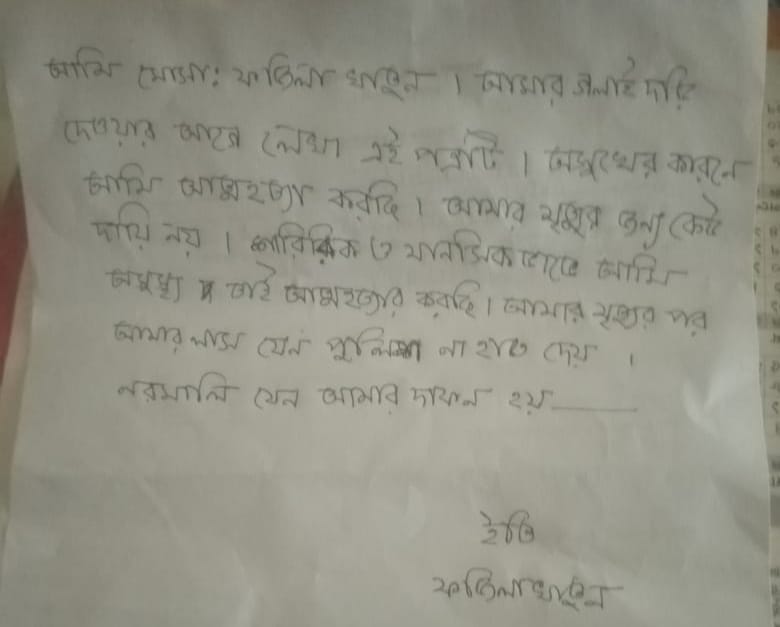 আমি মোসা: ফজিলা খাতুন । আমার গলাই দড়ি
দেওয়ার আগে লেখা এই পত্রটি । অসুখের কারনে
আমি আত্মহত্যা করছি । আমার মৃত্যুর জন্য কেউ
দায়ি নয় । শারিরিক ও মানসিক ভাবে আমি
অসুস্থ্য তাই আত্মহত্যার করছি । আমার মৃত্যুর পর
আমার লাস যেন পুলিশ না হাত দেয় ।
নরমালি যেন আমার দাফন হয়
ইতি
ফজিলা খাতুন